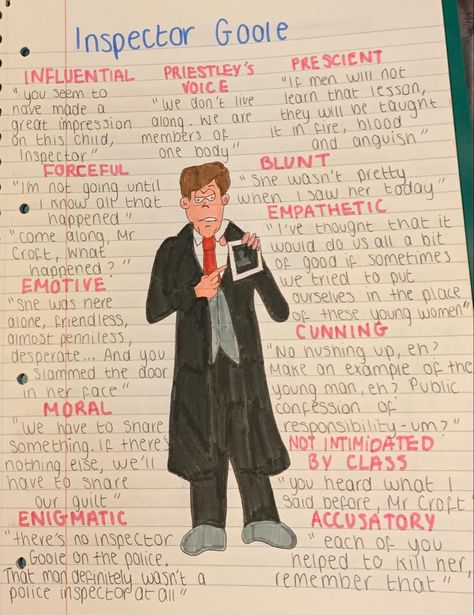 Inspector Goole
INFLUENTIAL
"you seem to
have made a
great impression
on this child,
Inspector"
PRIESTLEY'S
VOICE
"We don't live
along. We are
members of
one body"
PRESCIENT
"If men will not
learn that lesson,
they will be taught
it in fire, blood
and anguish"
FORCEFUL
"I'm not going until
I know all that
happened"
"come along, Mr
Croft, what
happened?"
BLUNT
"She wasn't pretty
when I saw her today"
EMPATHETIC
"I've thought that it
would do us all a bit
of good if sometimes
we tried to put
ourselves in the place
of these young women"
EMOTIVE
"She was here
alone, friendless,
almost penniless,
desperate... And you
slammed the door
in her face"
CUNNING
"No hushing up, eh?
Make an example of the
young man, eh? Public
confession of
responsibility-um?"
MORAL
"We have to share
something. If there's
nothing else, we'll
have to share
our guilt"
NOT INTIMIDATED
BY CLASS
"you heard what I
said before, Mr Croft"
ENIGMATIC
"there's no Inspector
Goole on the police.
That man definitely wasn't a
police inspector at all"
ACCUSATORY
"each of you
helped to kill her,
remember that"